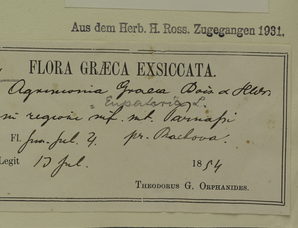 Aus dem Herb. H. Ross. Zugegangen 1931.
FLORA GRÆCA EXSICCATA.
Agrimonia Graeca Bois & Heldr.
Eupatoria L.
in regione inf. mt. Parnassi
Fl. Jun. Jul. ♃ pr. Rachova.
Legit 13 Jul. 1854
THEODORUS G. ORPHANIDES.